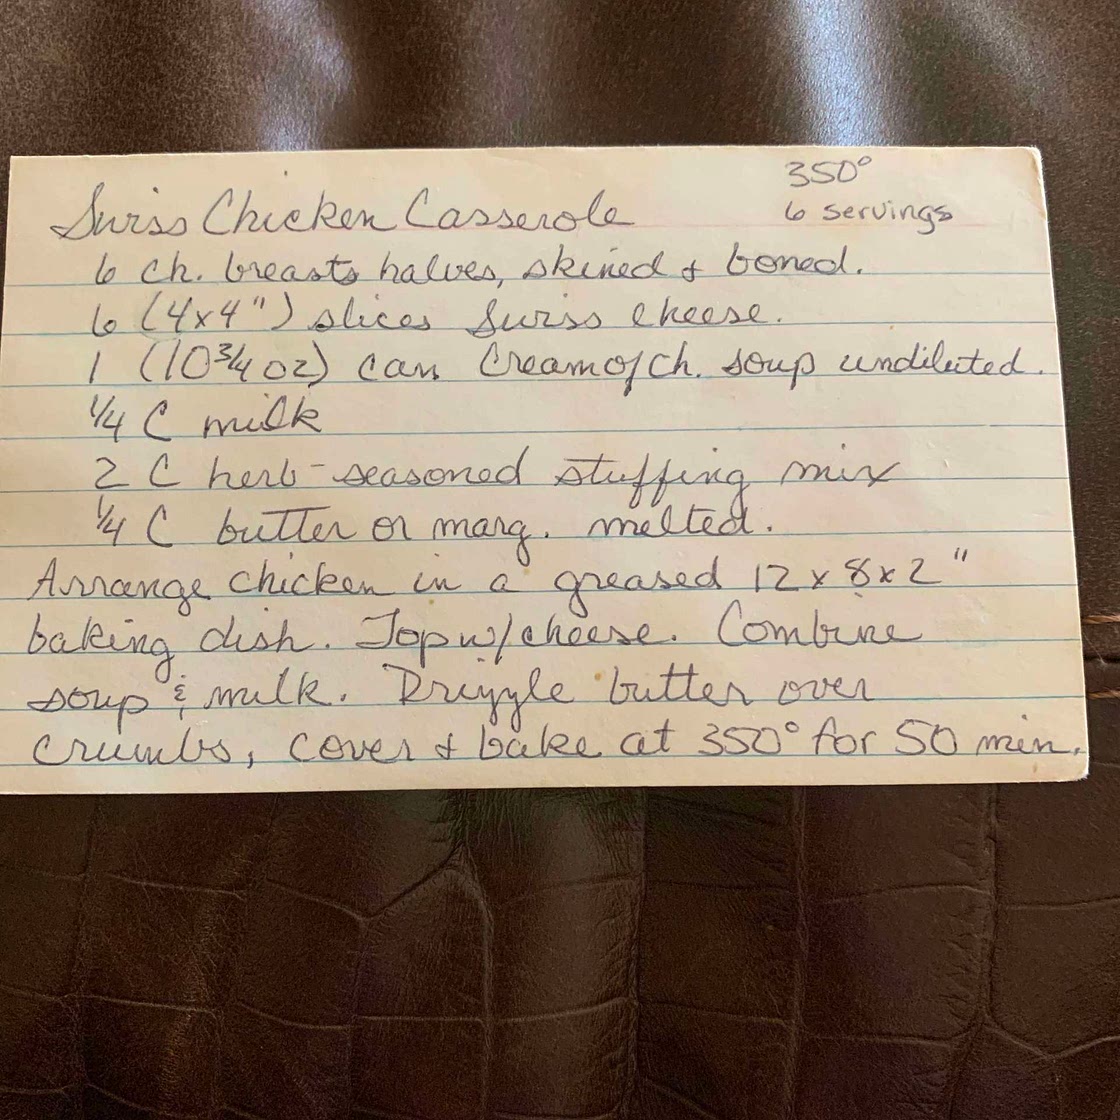 350°
Swiss Chicken Casserole
6 servings
6 ch. breasts halves, skined & boned.
6 (4x4") slices Swiss cheese.
1 (10 3/4 oz) can Cream of Ch. soup undiluted.
1/4 C milk
2 C herb-seasoned stuffing mix
1/4 C butter or marg. melted.
Arrange chicken in a greased 12x8x2"
baking dish. Top w/cheese. Combine
soup & milk. Drizzle butter over
crumbs, cover & bake at 350° for 50 min.